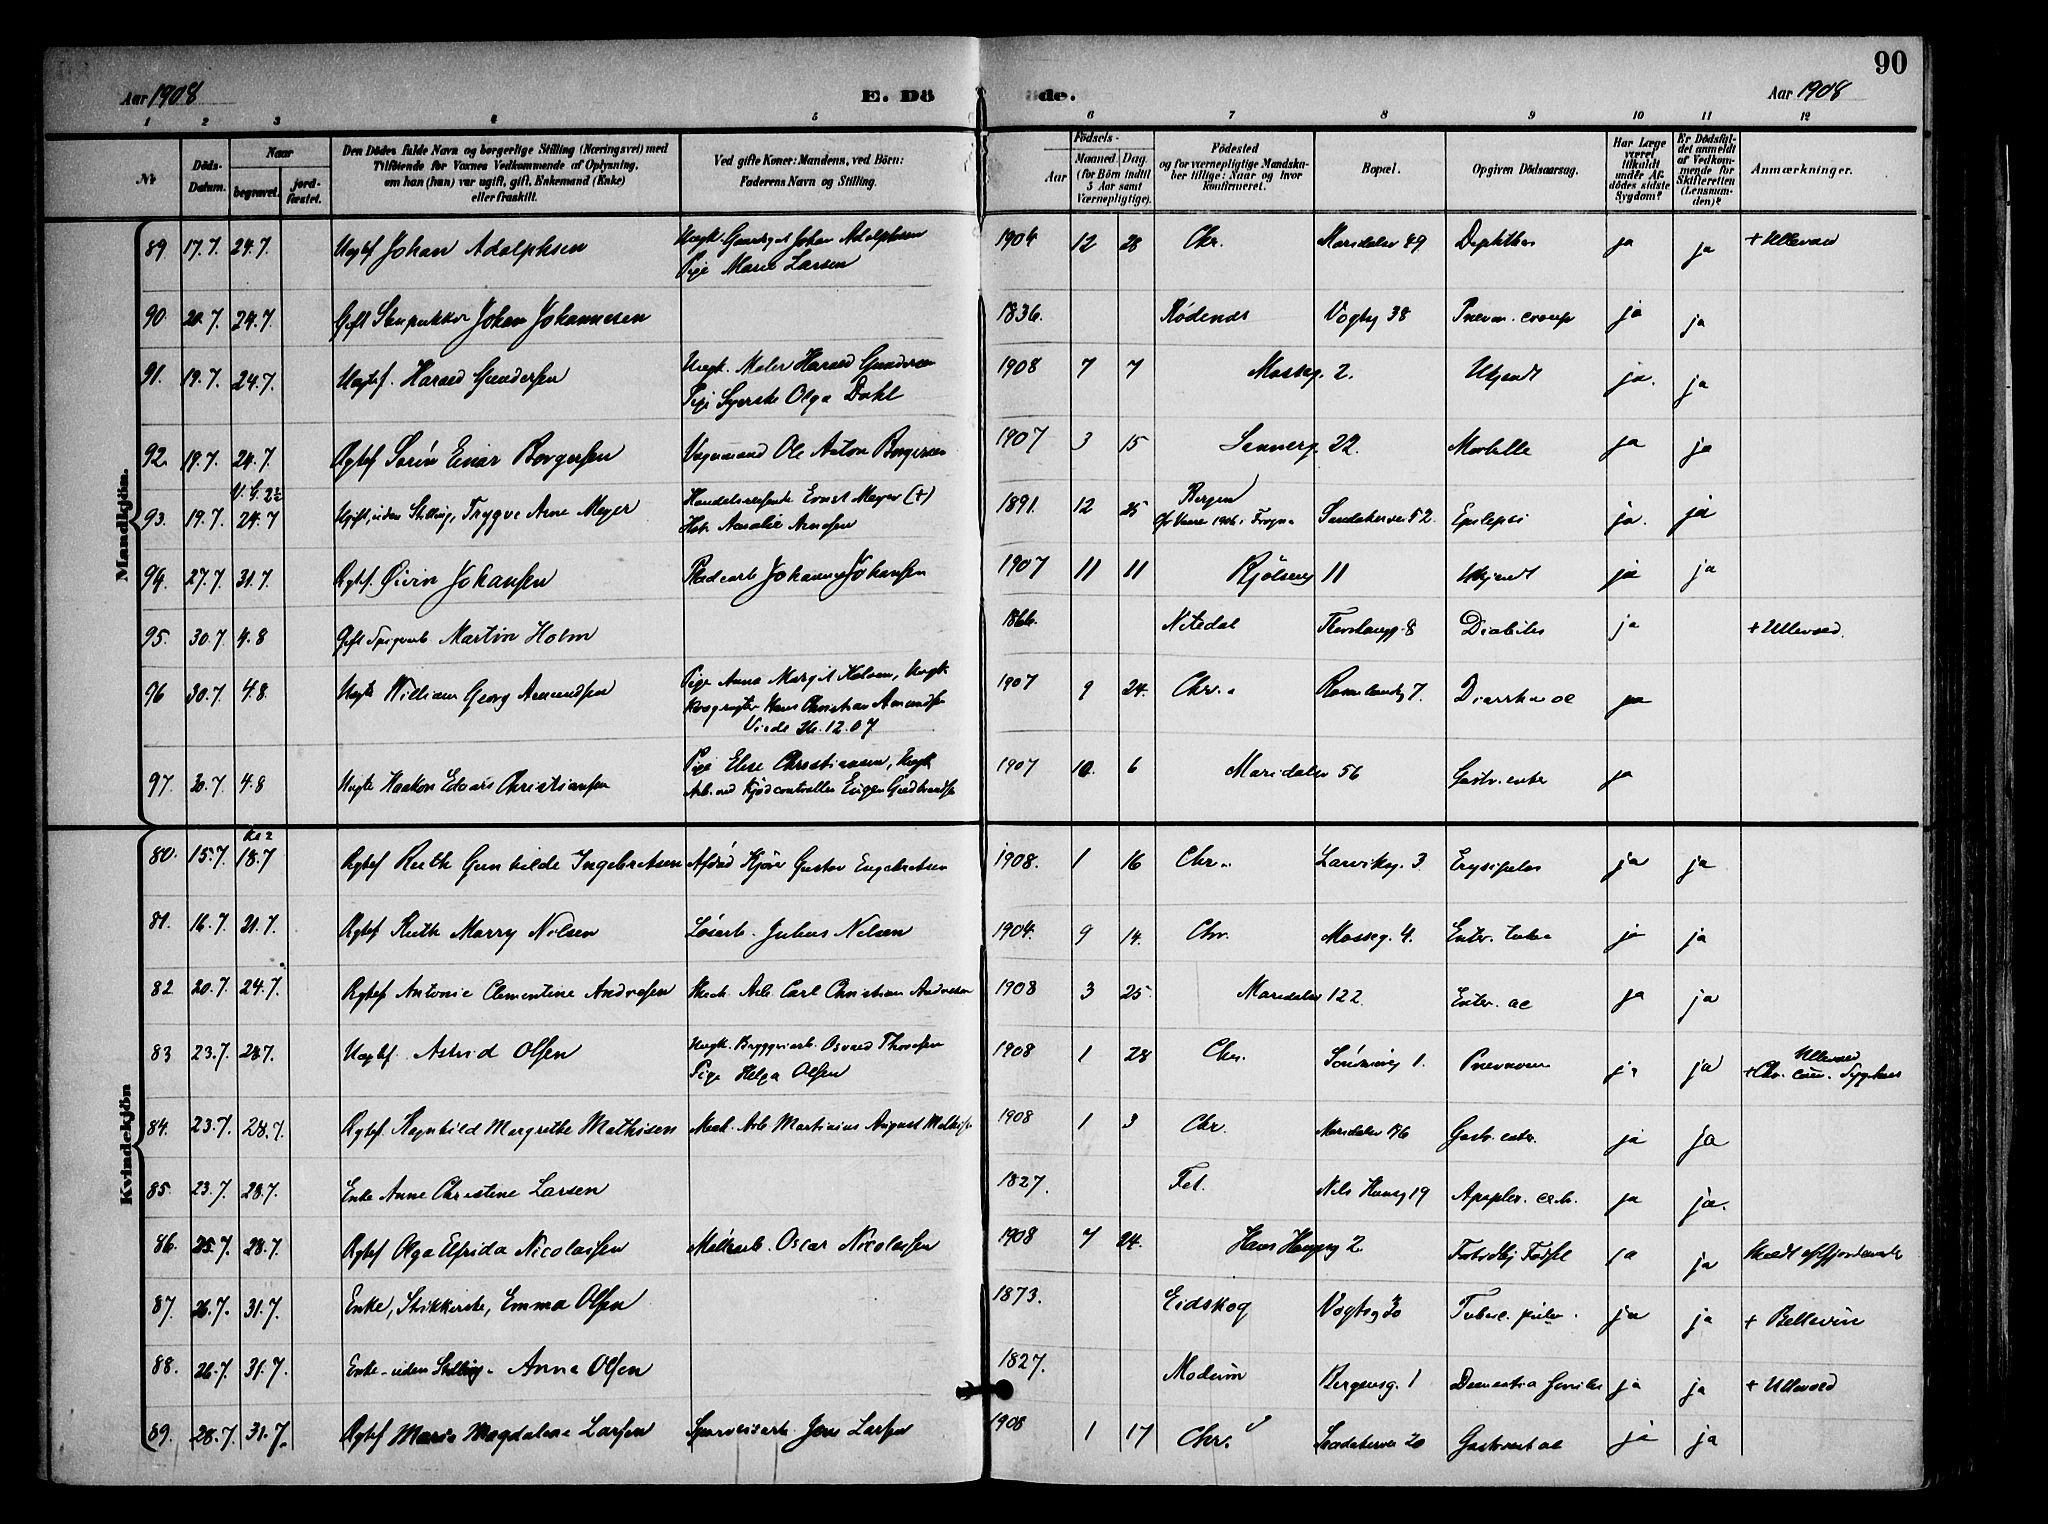 90
Aar 1908
E. Dö
de.
Aar 1908
1 2 3 4 5 6 7 8 9 10 11 12
Nr.
Döds-Datum.
Naar
begravet.
jord-fæstet.
Den Dödes fulde Navn og borgerlige Stilling (Næringsvei) med
Tilföiende for Voxnes Vedkommende af Oplysning,
om han (hun) var ugift, gift, Enkemand (Enke)
eller fraskilt.
Ved gifte Koner: Mandens, ved Börn:
Faderens Navn og Stilling.
Födsels-
Aar
Maaned (for Börn indtil 3 Aar samt Værnepligtige).
Dag.
Födested
og for værnepligtige Mandska-
ber tillige: Naar og hvor
konfirmeret.
Bopæl.
Opgiven Dödsaarsag.
Har Læge været tilkaldt under Afdödes sidste Sygdom?
Er Dödsfaldet anmeldt af Vedkommende for Skifteretten (Lensmanden)?
Anmærkninger.
Mandkjön.
89. 17.7. 24.7. Uegtef. Johan Adolphsen Uegk. Johan Adolphsen 1904 12 28 Chr. Marsdalsv 89 Diphtheri ja ja + Ullevaal
Pige Marie Larsen
90. 20.7. 24.7. Gift Johan Johannesen 1836. Rödenes Vogtsg 38 Pnevm. croup ja ja
91. 19.7. 24.7. Uegtef. Harald Gundersen Uegk. Maler Harald Gundersen 1908 7 7 Mosseg. 2. Ukjendt ja. ja
Pige Syerske Olga Dahl
92. 19.7. 24.7 Egtef. Sörin Einar Borgersen Vognmand Ole Anton Borgersen 1907 3 15 22. Morbille ja ja
93. 19.7. 24.7 Ugift, uden Stilling, Trygve Arne Meyer Handelsreisende Ernst Meyer (+) 1891. 12 25 Bergen Sandakerven 52. Epilepsi ja. ja
Amalie Arnesen
94. 27.7. 31.7. Egtef. Öivin Johansen Johannes Johansen 1907 11 11 Kjölseng 11 Ukjendt ja ja
95. 30.7. 4.8 Gift Martin Holm 1866. Nitedal 8 Diabetes ja + Ullevaal.
96 30.7. 4.8. Uegte William Georg Amundsen Pige Anna Margit Holsen, Uegk. 1907 9 24. Chr. 7. Diarrhe ac ja
Hans Christian Amundsen
Viede 26.12.07
97. 30.7. 4.8 Uegte Haakon Edvard Christiansen Pige Elise Christiansen, Uegk. 1907 10. 6 Marsdalsv 56 Gastr. enter ja
Arb. ved Kjödcontrollen Eugen Gudbrandsen
Kvindekjön
80. 15.7. 18.7 Egtef Ruth Gunhilde Ingebretsen Afdöd Kjörer Gustav Engebretsen 1908. 1 16 Chr. Larviksg. 3 Erysipelas ja ja
81. 16.7. 21.7. Egtef Ruth Marry Nilsen Lösarb. Julius Nilsen 1904. 9 14. Chr. Mosseg. 4. Enter. tuber ja ja
82. 20.7. 24.7. Egtef Antonie Clementine Andresen Mech. Arb. Carl Christian Andresen 1908 3 25. Marsdalsv 122. Enter. ac ja ja
83 23.7. 28.7. Uegtef. Astrid Olsen Uegk. Bryggeriarb. Osvald Thoresen 1908 1 28 Chr. 1. Pnevmoni ja ja Ullevaal
Pige Helga Olsen + Chr. com. Sygehus
84. 23.7. 28.7. Egtef. Hagnhild Margrethe Mathisen Mech. Arb Martinius August Mathisen 1908 1 3 Chr. Marsdalsv Gastr. enter. ja ja
85. 23.7. 28.7. Enke Anne Christine Larsen 1827. Fet. Nils Hansg 19 Apoplex. cer. ja ja.
86. 25.7. 28.7. Egtef Olga Elfrida Nicolaisen Oscar Nicolaisen 1908 7 24. Hans Haugesg 2 ja ja
87. 26.7. 31.7. Enke, Strikkerske, Emma Olsen 1873. Eidskog Vogtsg 30 Tuberc. pulm. ja ja + Bellevue
88. 26.7. 31.7. Enke - uden Stilling - Anna Olsen 1827. Modum Bergensg. 1 Dementia senilis ja ja + Ullevaal
89. 28.7. 31.7. Egtef Marie Magdalene Larsen Sporveisarb. Jens Larsen 1908 1 17 Chr. Sandakerven 20 Gastroent ac ja ja